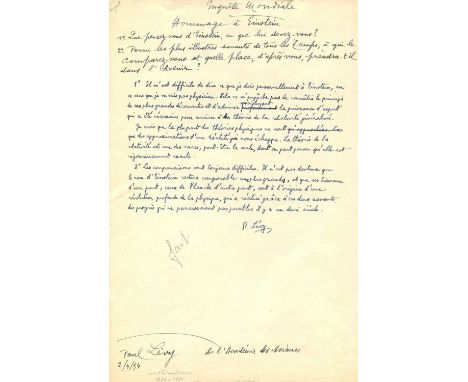 Enquête Mondiale
Hommage à Einstein
1° Que pensez vous d'Einstein, ou que lui devez-vous?
2° Parmi les plus illustres savants de tous les Temps, à qui le
comparez-vous et quelle place, d'après vous, prendra-t-il
dans l'Avenir?
1° Il m'est difficile de dire ce que je dois personnellement à Einstein, car
je ne suis pas physicien. Cela ne m'empêche pas de connaître le principe
de ses plus grandes découvertes et d'admirer la puissance d'esprit
qui a été nécessaire pour arriver à la théorie de la relativité généralisée.
Je crois que la plupart des théories physiques ne sont que
que des approximations d'une réalité qui nous échappe. La théorie de la
relativité est une des rares, peut-être la seule, dont on peut penser qu'elle est
rigoureusement exacte.
2° Les comparaisons sont toujours difficiles. Il n'est pas douteux que
le nom d'Einstein restera comparable aux plus grands, et que ses travaux
d'une part, ceux de Planck d'autre part, sont à l'origine d'une
révolution profonde de la physique, qui a réalisé grâce à ces deux savants
des progrès qui ne paraissaient pas possibles il y a un demi siècle.
P. Lévy
fait
Paul Lévy de l'Académie des Sciences
mathématicien
1886-1971